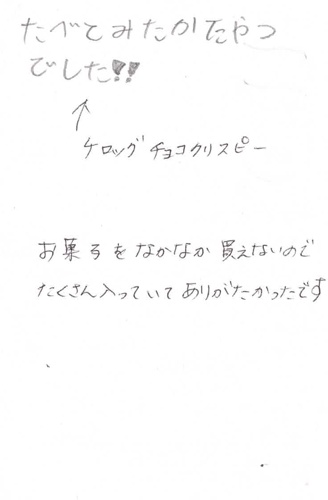 たべてみたかたやつ
でした!!
↑
ケロッグチョコクリスピー
お菓子をなかなか買えないので
たくさん入っていてありがたかったです